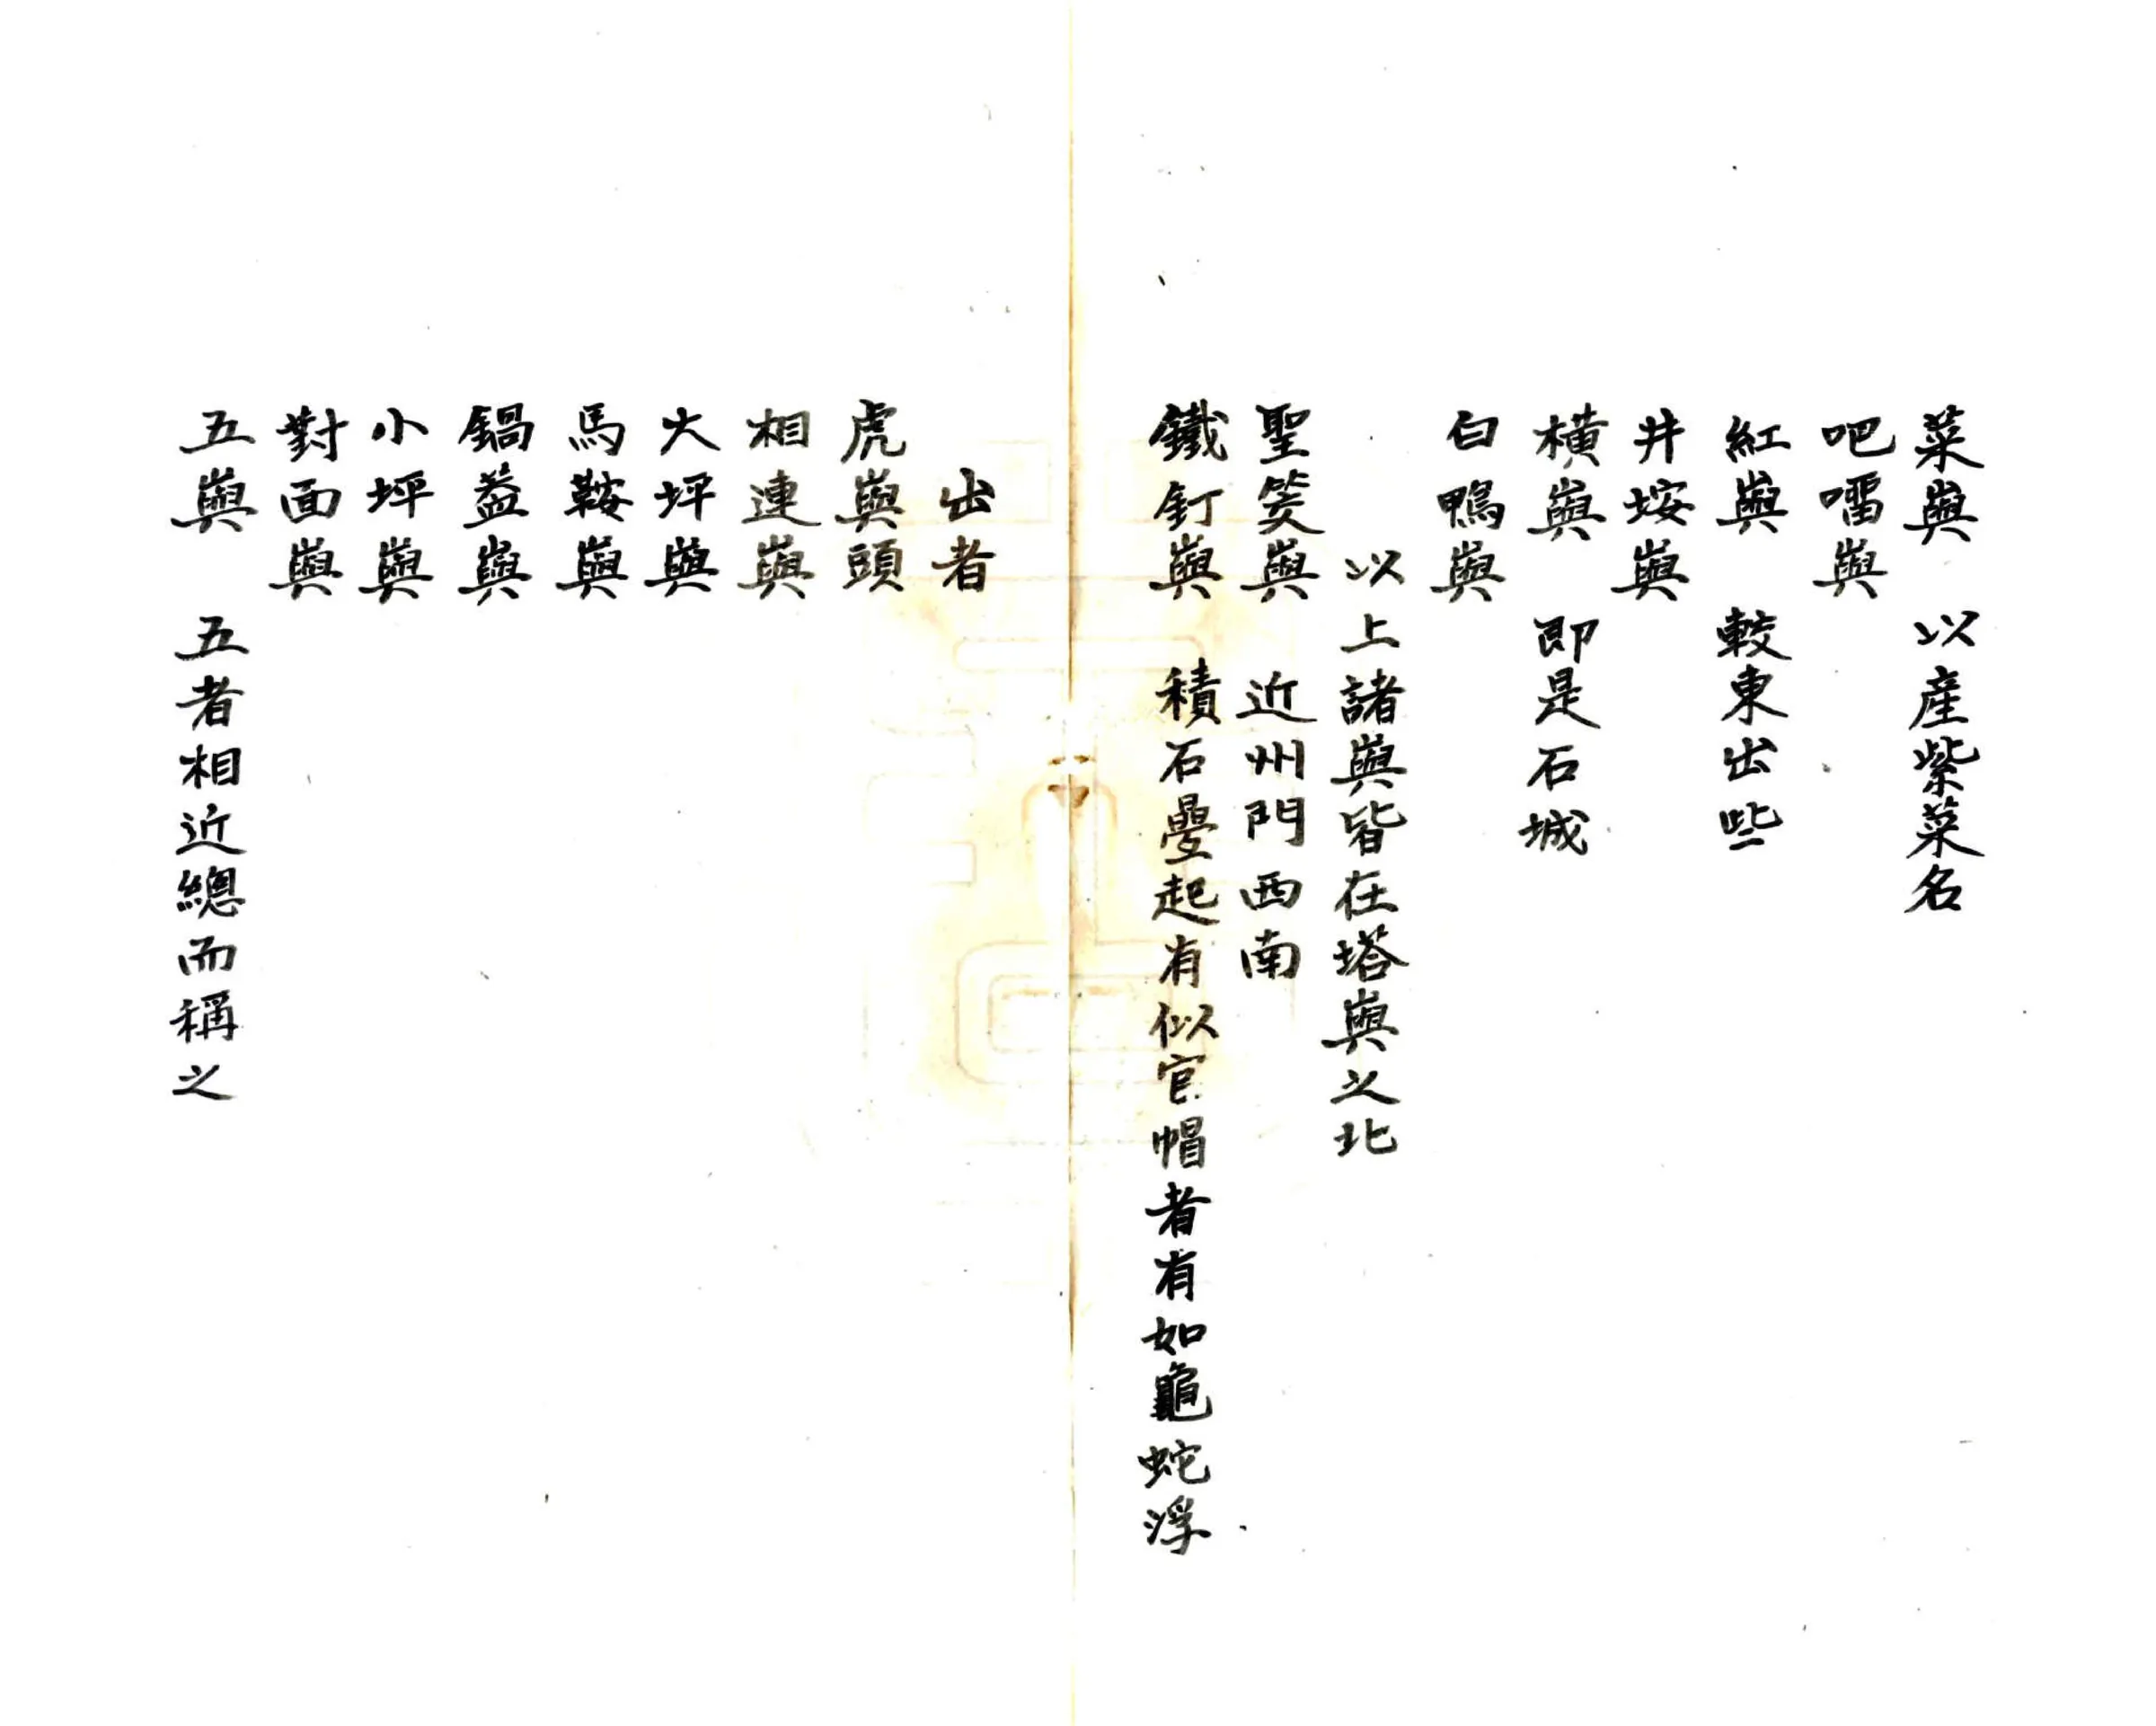 菜嶼 以產紫菜名
吧㗊嶼
紅嶼 較東出些
井垵嶼
橫嶼 即是石城
白鴨嶼
以上諸嶼皆在塔嶼之北
聖筊嶼 近州門西南
鐵釘嶼 積石疊起有似官帽者有如龜蛇浮
出者
虎嶼頭
相連嶼
大坪嶼
馬鞍嶼
鍋蓋嶼
小坪嶼
對面嶼
五嶼 五者相近總而稱之